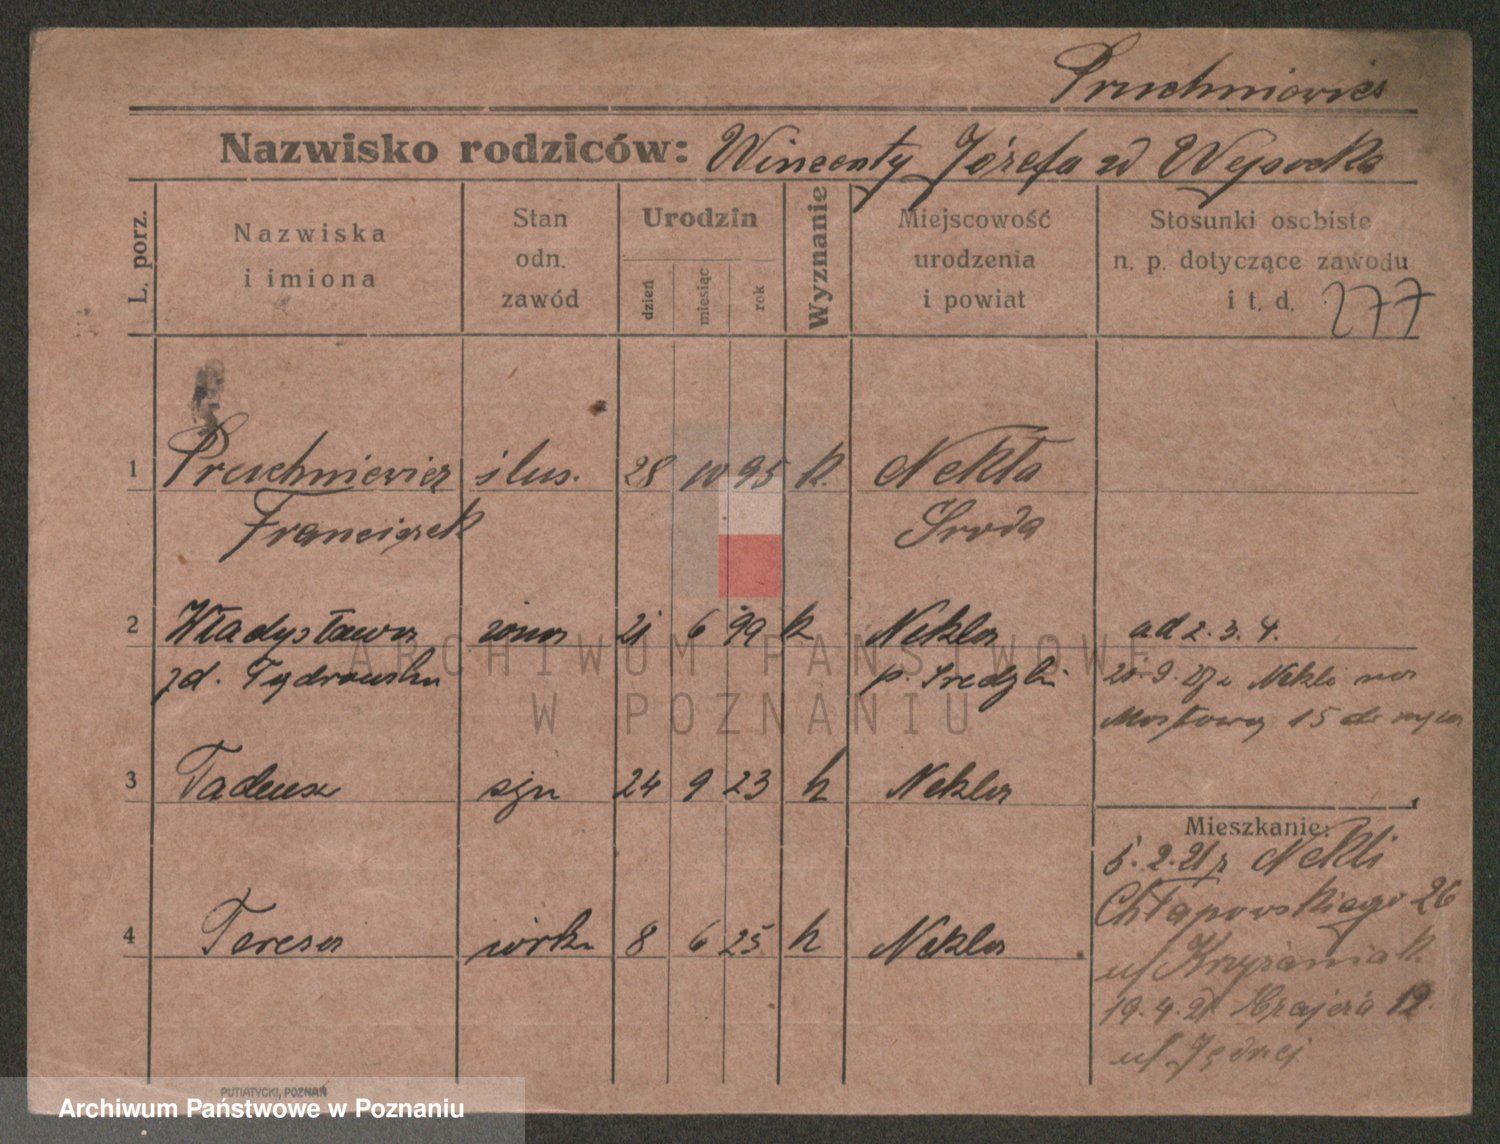 Pruchniewicz
Nazwisko rodziców: Wincenty Józefa zd Wysocka
L. porz.
Nazwiska
i imiona
Stan
odn.
zawód
Urodzin
dzień
miesiąc
rok
Wyznanie
Miejscowość
urodzenia
i powiat
Stosunki osobiste
n. p. dotyczące zawodu
i t. d.
277
1 Pruchniewicz ślus. 28 10 95 k. Nekła
Franciszek Środa
2 Władysława żona 21 6 99 k Nekla ad 2. 3. 4.
zd. p. Średzki 21.9. z Nekli na
Mostową 15 do męża
3 Tadeusz syn 24 9 23 k Nekla
Mieszkanie:
5.2.21 z Nekli
Chłapowskiego 26
4 Teresa córka 8 6 25 k Nekla
u/ Krzyżaniak.
19.4.21 12.
u/
PUTIATYCKI, POZNAŃ
ARCHIWUM PAŃSTWOWE
W POZNANIU
Archiwum Państwowe w Poznaniu